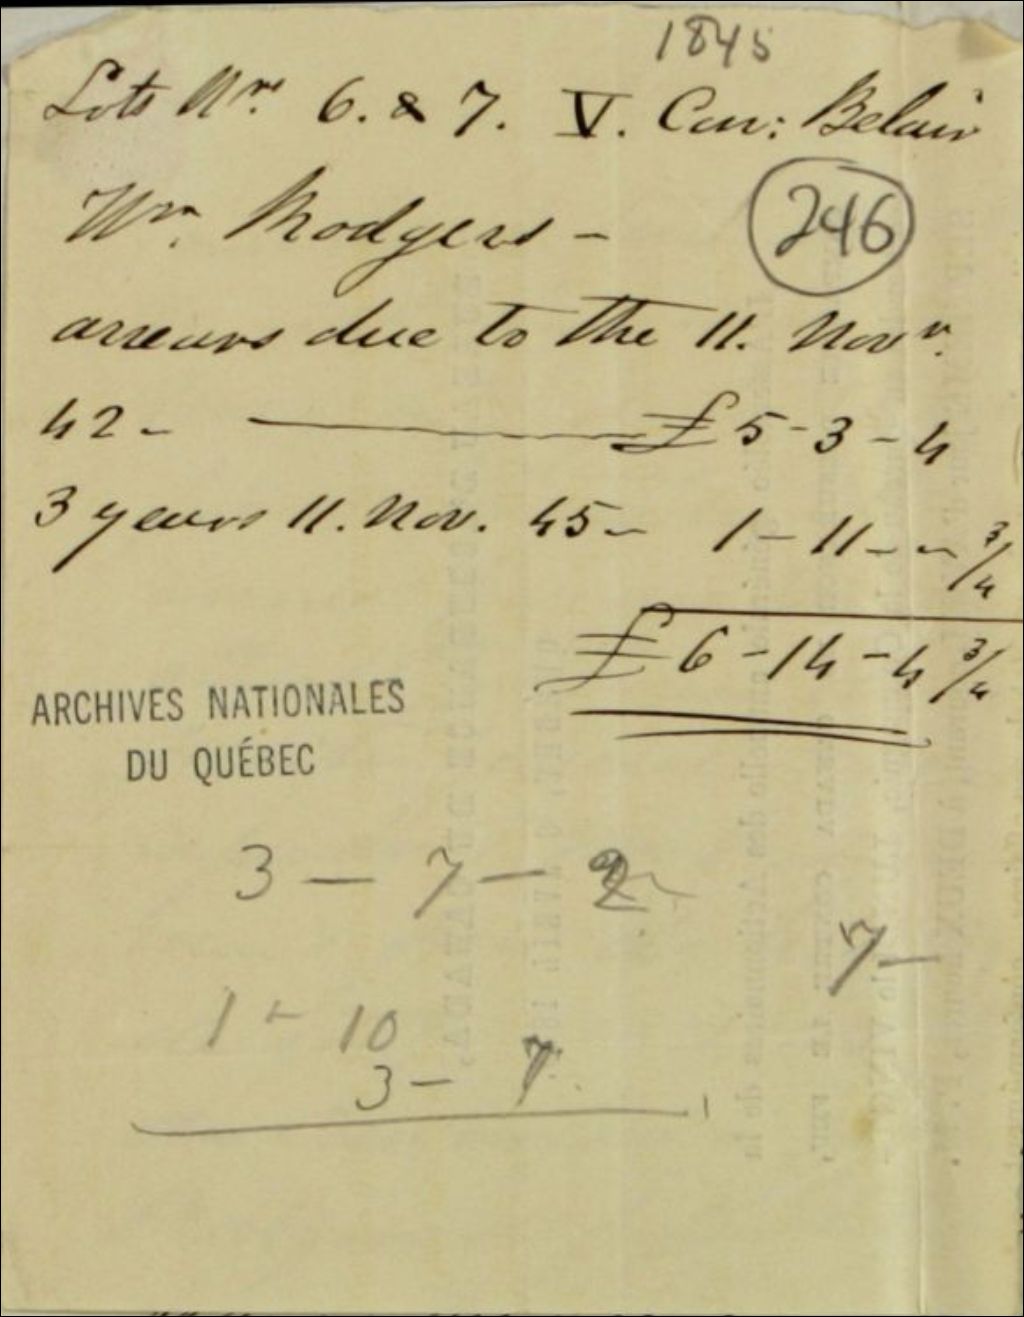 1845
Lots Nrs 6. & 7. V. Con: Belair
Wm. Rodgers -
246
arrears due to the 11. Novr.
42 - £ 5-3-4
3 years 11. Nov. 45 - 1-11- - 3/4
£ 6-14-4 3/4
ARCHIVES NATIONALES
DU QUÉBEC
3 - 7 - 2
7 -
1 - 10
3 - 7